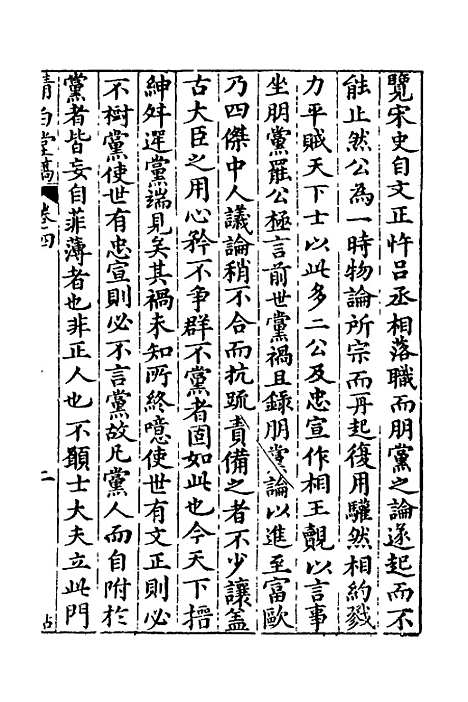 覽宋史自文正忤呂丞相落職而朋黨之論遂起而不
能止然公為一時物論所宗而再起復用驩然相約戮
力平賊天下士以此多二公及忠宣作相王覿以言事
坐朋黨罷公極言前世黨禍且錄朋黨論以進至富歐
乃四傑中人議論稍不合而抗疏責備之者不少讓蓋
古大臣之用心矜不争群不黨者固如此也今天下搢
紳舛逕黨端見矣其禍未知所終噫使世有文正則必
不樹黨使世有忠宣則必不言黨故凡黨人而自附於
黨者皆妄自菲薄者也非正人也不願士大夫立此門
清白堂稿
卷四
二